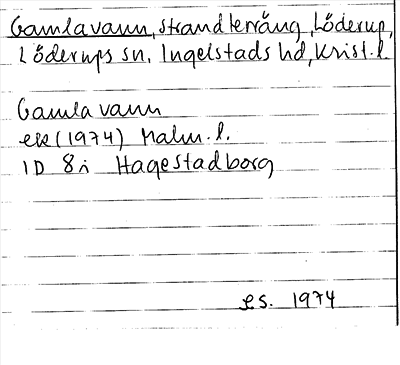 Gamlavann, strandterräng, Löderup,
Löderups sn, Ingelstads hd, Krist. l.
Gamlavann
ek (1974) Malm. l.
1D 8i Hagestadborg
es. 1974